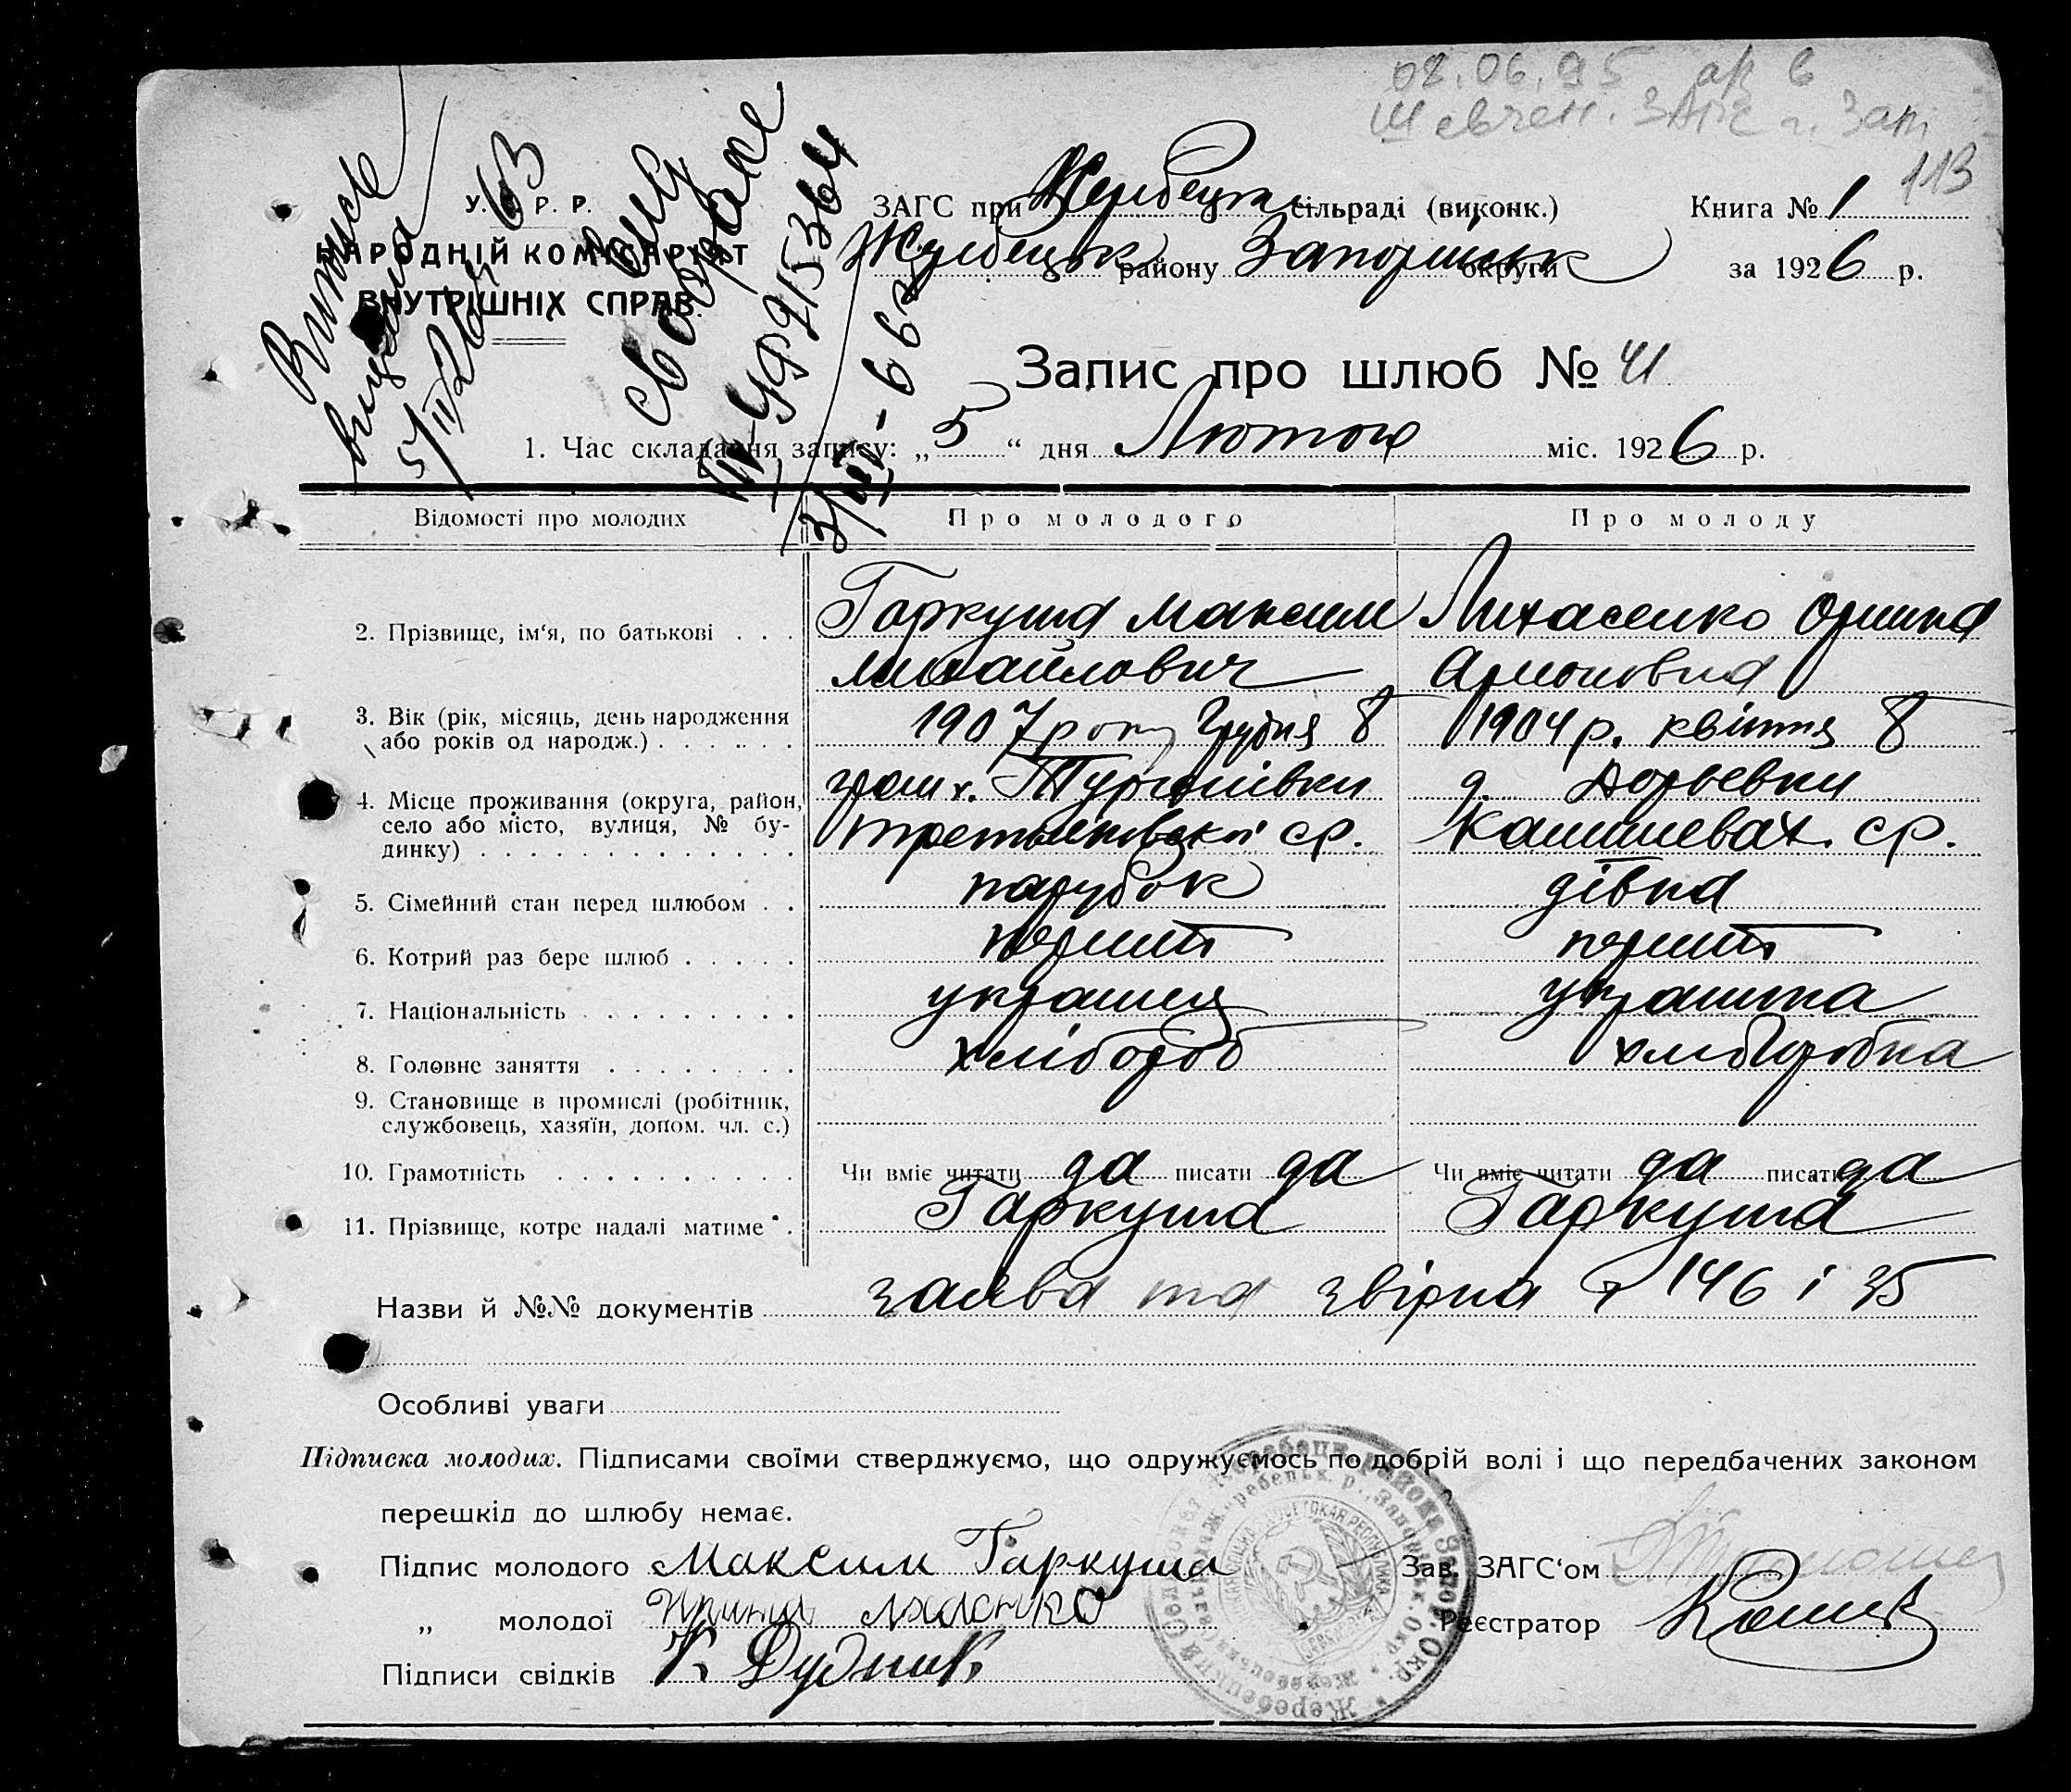 02.06.95 ар 6
Шевчен. ЗАГС г. Зап
113
У. Р. Р.
НАРОДНІЙ КОМІСАРІЯТ
ВНУТРІШНІХ СПРАВ.
Витяг
видана
5/IV 26
63
№ 915364
ЗАГС при Жеребецьк сільраді (виконк.) Книга № 1
Жеребецьк району Запоріжськ округи за 1926 р.
Запис про шлюб № 41
1. Час складання запису: „5“ дня Лютого міс. 1926 р.
Відомості про молодих Про молодого Про молоду
2. Прізвище, ім‘я, по батькові . . . Гаркуша Максим Лихасенко Орина
михайлович
3. Вік (рік, місяць, день народження 1907 року Грудня 8 1904 р. квітня 8
або років од народж.) . . . . . .
4. Місце проживання (округа, район, гром х.
село або місто, вулиця, № бу- ср. Камишевах. ср.
динку) . . . . . . . . . . . . .
5. Сімейний стан перед шлюбом . . парубок дівка
6. Котрий раз бере шлюб . . . . . перший перший
7. Національність . . . . . . . . . українец українка
8. Головне заняття . . . . . . . . хлібороб хліборобка
9. Становище в промислі (робітник,
службовець, хазяїн, допом. чл. с.)
10. Грамотність . . . . . . . . . . Чи вміє читати да писати да Чи вміє читати да писати да
11. Прізвище, котре надалі матиме . Гаркуша Гаркуша
Назви й №№ документів заява та звірка 146 і 35
Особливі уваги
Підписка молодих. Підписами своїми стверджуємо, що одружуємось по добрій волі і що передбачених законом
перешкід до шлюбу немає.
Підпис молодого Максим Гаркуша Зав. ЗАГС‘ом
„ молодої Реєстратор
Підписи свідків К Дудник